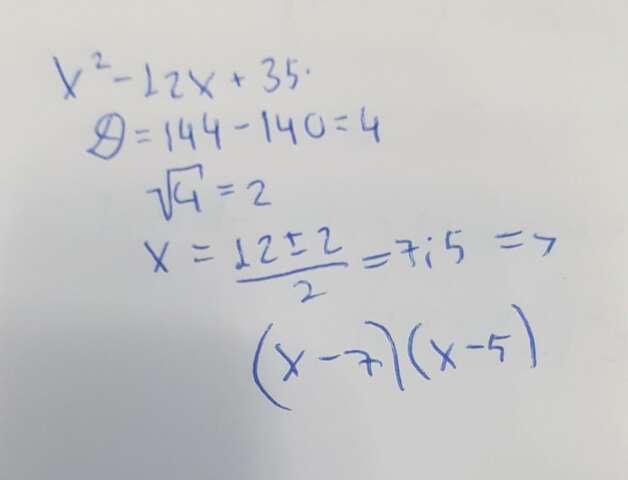 x² - 12x + 35.
D = 144 - 140 = 4
√4 = 2
x = (12 ± 2)/2 = 7; 5 =>
(x - 7)(x - 5)